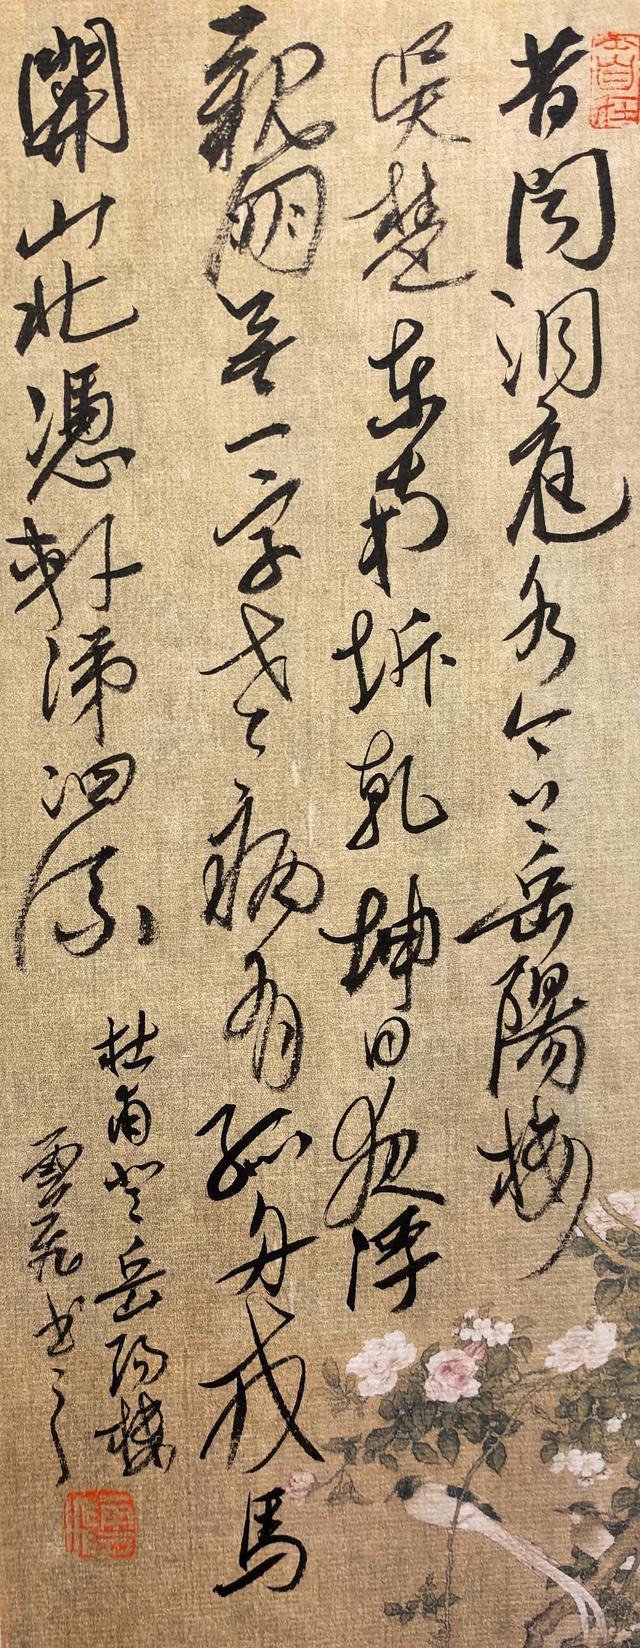 昔闻洞庭水今上岳陽樓
吴楚東南坼乾坤日夜浮
親朋無一字老病有孤舟戎馬
關山北憑軒涕泗流
杜甫登岳陽樓
雲飛书之